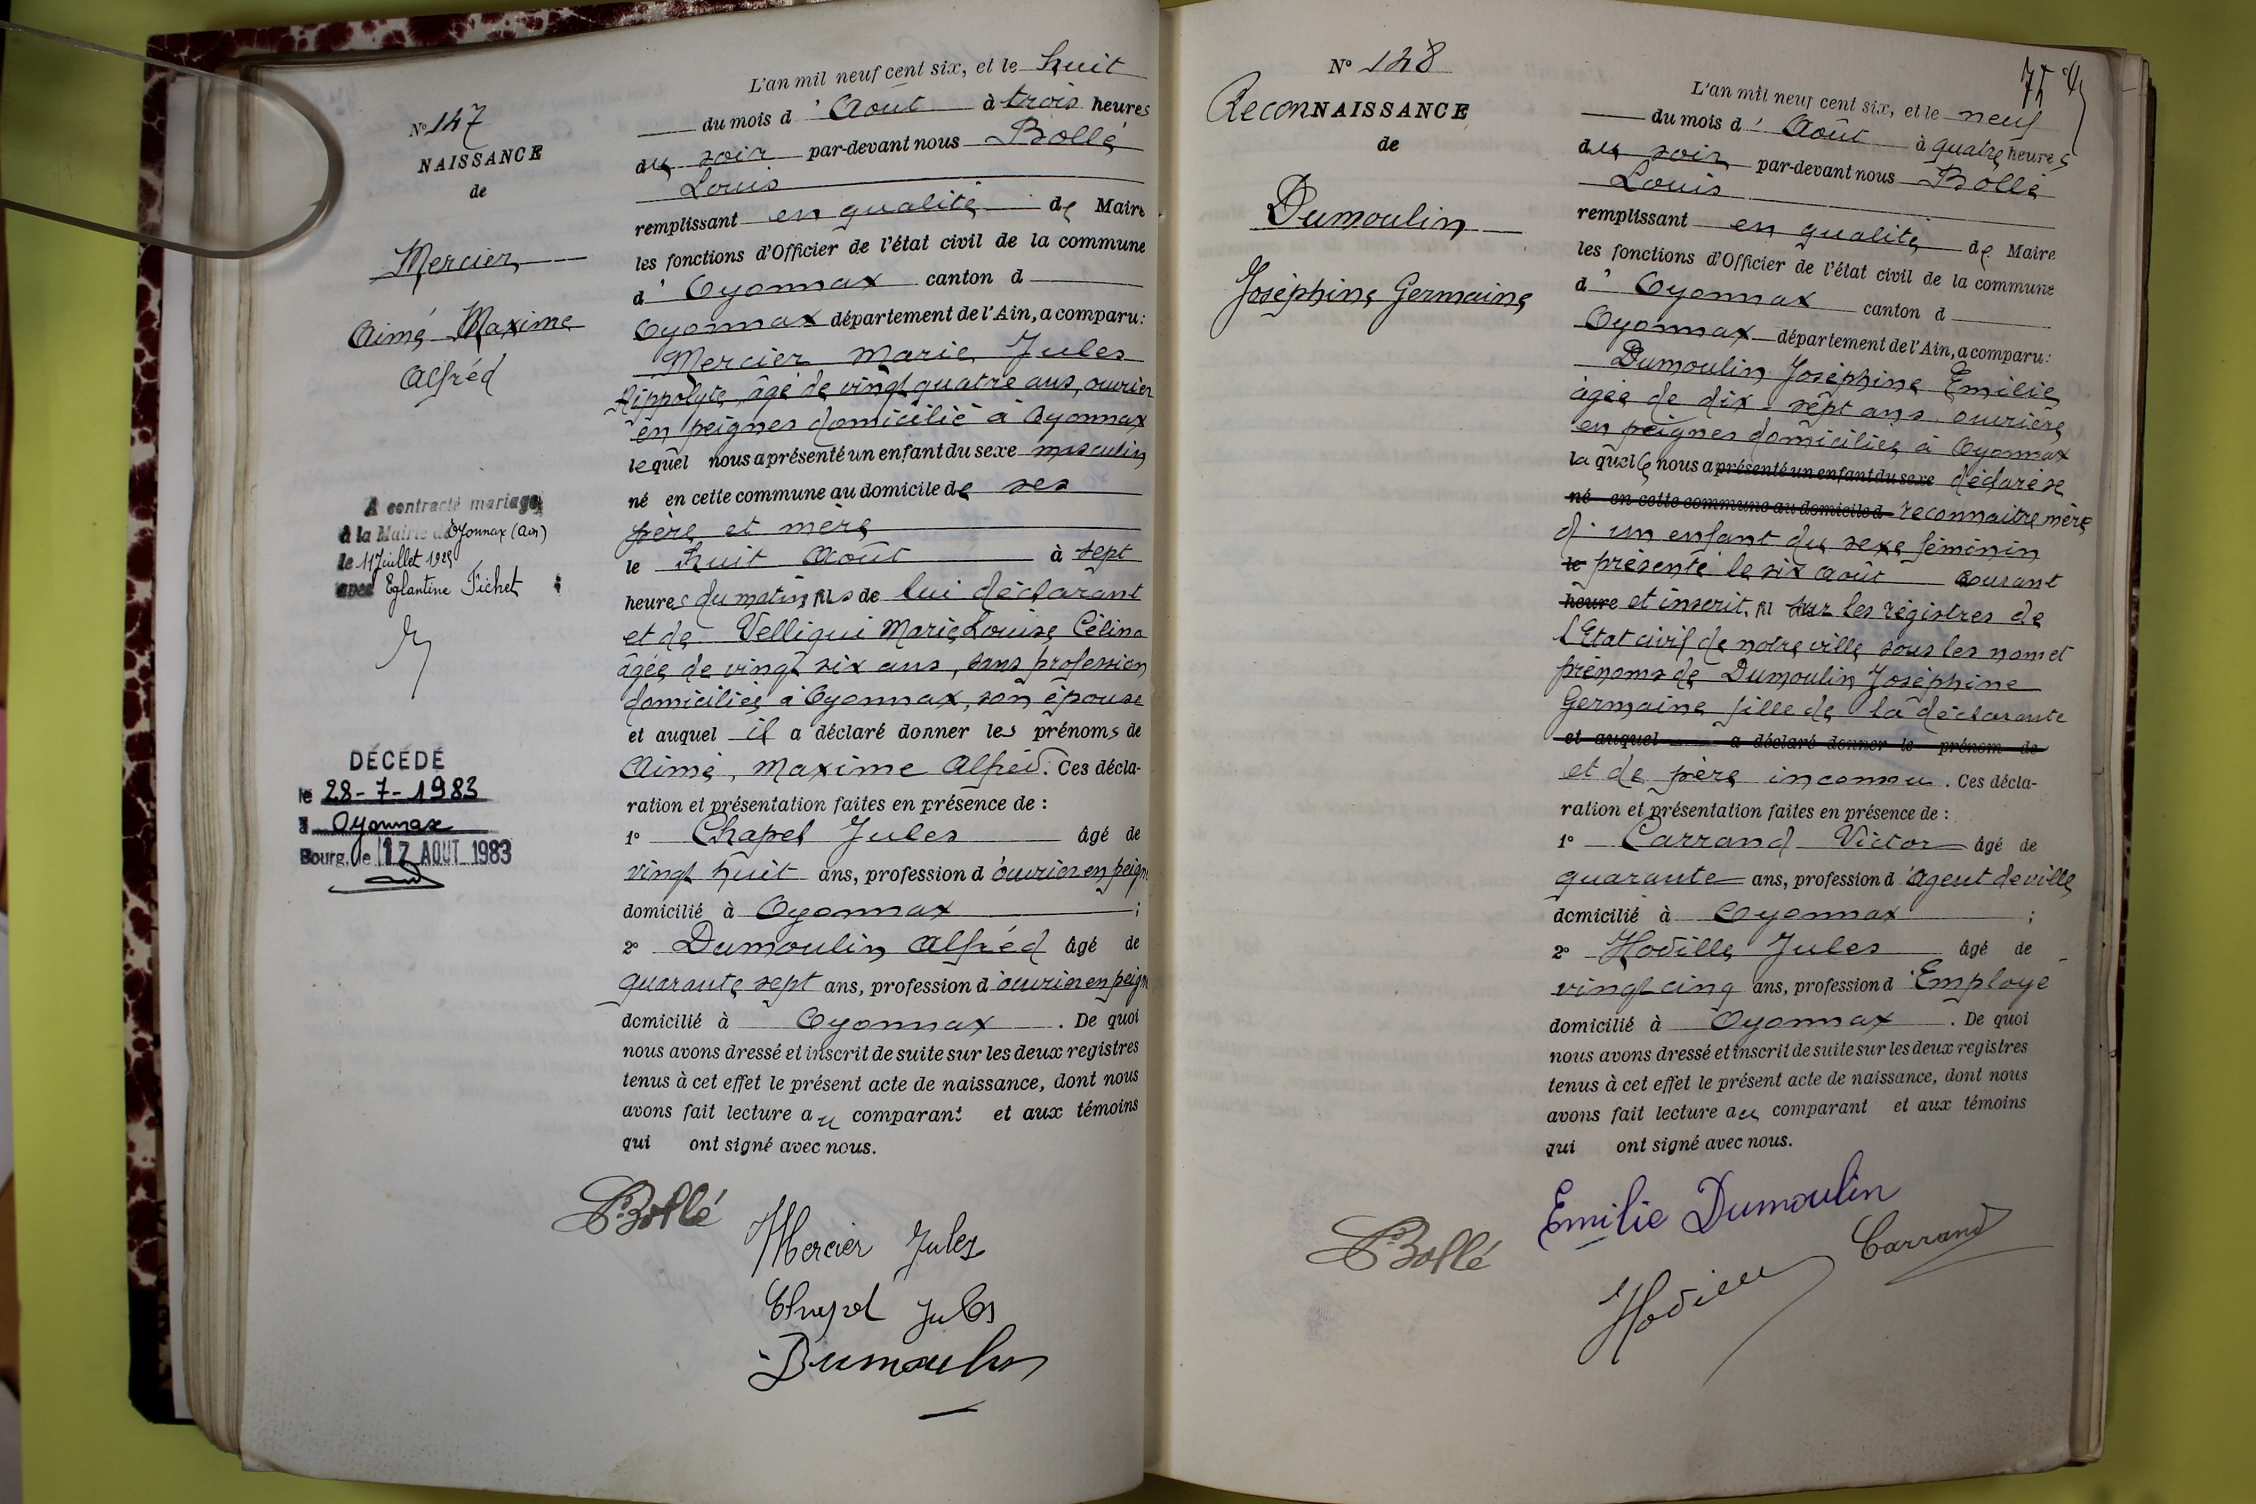 N° 147
NAISSANCE
de
Mercier
Aimé Maxime
Alfréd
A contracté mariage
à la Mairie d'Oyonnax (Ain)
le 11 Juillet 1925
avec Eglantine Fichet
DÉCÉDÉ
le 28-7-1983
à Oyonnax
Bourg, le 17 AOUT 1983
L'an mil neuf cent six, et le huit
du mois d'Août à trois heures
du soir par-devant nous Bollé
Louis
remplissant en qualité de Maire
les fonctions d'Officier de l'état civil de la commune
d'Oyonnax canton d
Oyonnax département de l'Ain, a comparu:
Mercier Marie Jules
Hippolyte, âgé de vingt quatre ans, ouvrier
en peignes domicilié à Oyonnax
lequel nous a présenté un enfant du sexe masculin
né en cette commune au domicile de ses
père et mère
le huit Août à sept
heures du matin, fils de lui déclarant
et de Velliqui Marie Louise Célina
âgée de vingt six ans, sans profession
domiciliée à Oyonnax, son épouse
et auquel il a déclaré donner les prénoms de
Aimé, Maxime Alfréd. Ces décla-
ration et présentation faites en présence de :
1° Chapel Jules âgé de
vingt huit ans, profession d'ouvrier en peign
domicilié à Oyonnax ;
2° Dumoulin Alfréd âgé de
quarante sept ans, profession d'ouvrier en peign
domicilié à Oyonnax . De quoi
nous avons dressé et inscrit de suite sur les deux registres
tenus à cet effet le présent acte de naissance, dont nous
avons fait lecture au comparant et aux témoins
qui ont signé avec nous.
L. Bollé
Mercier Jules
Chapel Jules
Dumoulin
N° 148
ReconNAISSANCE
de
Dumoulin
Joséphine Germaine
L'an mil neuf cent six, et le neuf
du mois d'Août à quatre heures
du soir par-devant nous Bollé
Louis
remplissant en qualité de Maire
les fonctions d'Officier de l'état civil de la commune
d'Oyonnax canton d
Oyonnax département de l'Ain, a comparu:
Dumoulin Joséphine Emilie
âgée de dix-sept ans, ouvrière
en peignes domiciliée à Oyonnax
laquelle nous a présenté un enfant du sexe déclaré se
né en cette commune au domicile d reconnaitre mère
d'un enfant du sexe féminin
le présenté le six Août courant
heure et inscrit, fil sur les régistres de
l'Etat civil de notre ville sous les nom et
prénoms de Dumoulin Joséphine
Germaine fille de la déclarante
et auquel a déclaré donner le prénom de
et de père inconnu. Ces décla-
ration et présentation faites en présence de :
1° Carrand Victor âgé de
quarante ans, profession d'Agent de ville
domicilié à Oyonnax ;
2° Hoville Jules âgé de
vingt cinq ans, profession d'Employé
domicilié à Oyonnax . De quoi
nous avons dressé et inscrit de suite sur les deux registres
tenus à cet effet le présent acte de naissance, dont nous
avons fait lecture au comparant et aux témoins
qui ont signé avec nous.
Emilie Dumoulin
L. Bollé
Carrand
Hoville